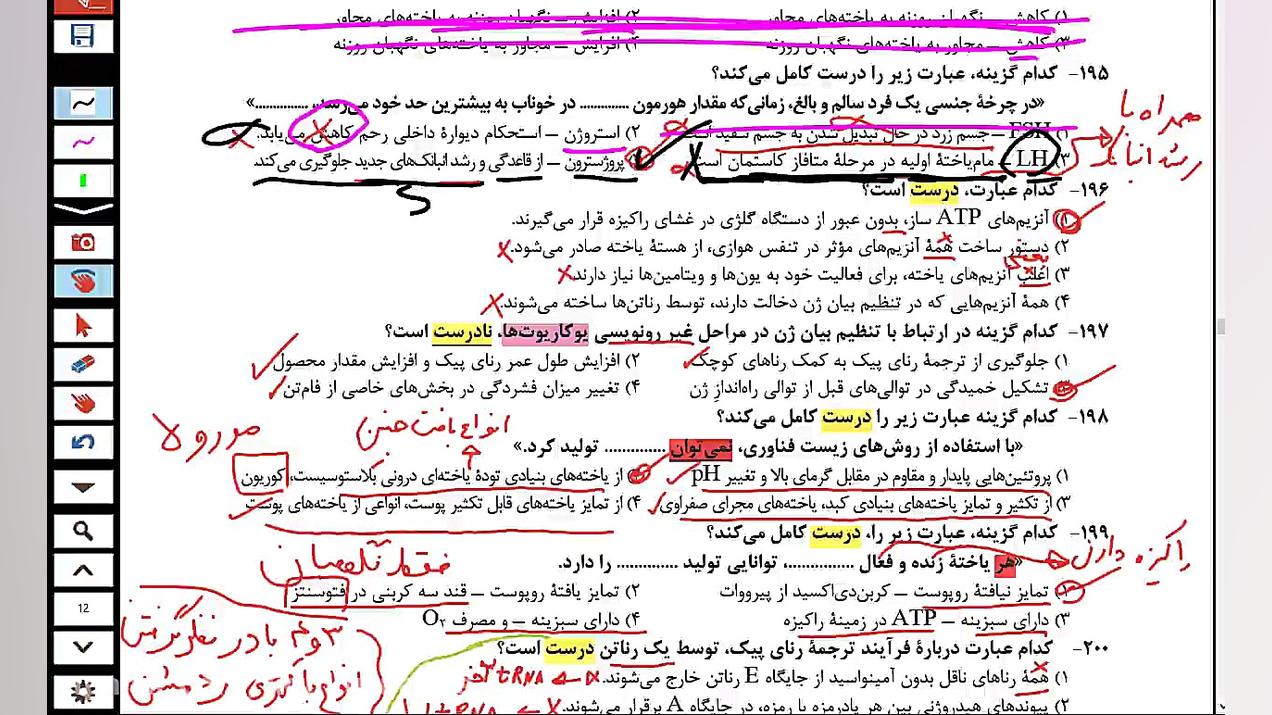 ۱) کاهش — نگهبان روزنه به یاخته‌های مجاور ۲) افزایش — نگهبان روزنه به یاخته‌های مجاور
۳) کاهش — مجاور به یاخته‌های نگهبان روزنه ۴) افزایش — مجاور به یاخته‌های نگهبان روزنه
۱۹۵- کدام گزینه، عبارت زیر را درست کامل می‌کند؟
«در چرخهٔ جنسی یک فرد سالم و بالغ، زمانی‌که مقدار هورمون ............ در خوناب به بیشترین حد خود می‌رسد، ............»
همراه با
رشد انبانک
۱) FSH — جسم زرد در حال تبدیل شدن به جسم سفید است. ۲) استروژن — استحکام دیوارهٔ داخلی رحم کاهش می‌یابد.
۳) LH — مام‌یاختهٔ اولیه در مرحلهٔ متافاز کاستمان است. پروژسترون — از قاعدگی و رشد انبانک‌های جدید جلوگیری می‌کند.
۱۹۶- کدام عبارت، درست است؟
۱) آنزیم‌های ATP ساز، بدون عبور از دستگاه گلژی در غشای راکیزه قرار می‌گیرند.
۲) دستور ساخت همهٔ آنزیم‌های مؤثر در تنفس هوازی، از هستهٔ یاخته صادر می‌شود.
بعضی
۳) اغلب آنزیم‌های یاخته، برای فعالیت خود به یون‌ها و ویتامین‌ها نیاز دارند.
۴) همهٔ آنزیم‌هایی که در تنظیم بیان ژن دخالت دارند، توسط رناتن‌ها ساخته می‌شوند.
۱۹۷- کدام گزینه در ارتباط با تنظیم بیان ژن در مراحل غیر رونویسی یوکاریوت‌ها، نادرست است؟
۱) جلوگیری از ترجمهٔ رنای پیک به کمک رناهای کوچک ۲) افزایش طول عمر رنای پیک و افزایش مقدار محصول
تشکیل خمیدگی در توالی‌های قبل از توالی راه‌انداز ژن ۴) تغییر میزان فشردگی در بخش‌های خاصی از فام‌تن
۱۹۸- کدام گزینه عبارت زیر را درست کامل می‌کند؟
انواع بافت جنین
مورولا
«با استفاده از روش‌های زیست فناوری، نمی‌توان ............ تولید کرد.»
۱) پروتئین‌هایی پایدار و مقاوم در مقابل گرمای بالا و تغییر pH از یاخته‌های بنیادی تودهٔ یاخته‌ای درونی بلاستوسیست، کوریون
۳) از تکثیر و تمایز یاخته‌های بنیادی کبد، یاخته‌های مجرای صفراوی ۴) از تمایز یاخته‌های قابل تکثیر پوست، انواعی از یاخته‌های پوست
۱۹۹- کدام گزینه، عبارت زیر را، درست کامل می‌کند؟
«هر یاختهٔ زنده و فعّال ............، توانایی تولید ............ را دارد.
راکیزه دارن
فقط نگهبان
۱) تمایز نیافتهٔ روپوست — کربن‌دی‌اکسید از پیرووات ۲) تمایز یافتهٔ روپوست — قند سه کربنی در فتوسنتز
۳) دارای سبزینه — ATP در زمینهٔ راکیزه ۴) دارای سبزینه — و مصرف O۲
۳ و ۴ با در نظر گرفتن
۲۰۰- کدام عبارت دربارهٔ فرآیند ترجمهٔ رنای پیک، توسط یک رناتن درست است؟
۱) همهٔ رناهای ناقل بدون آمینواسید از جایگاه E رناتن خارج می‌شوند.
tRNA
۲) پیوندهای هیدروژنی بین هر پادرمزه با رمزه، در جایگاه A برقرار می‌شوند.
tRNA
12